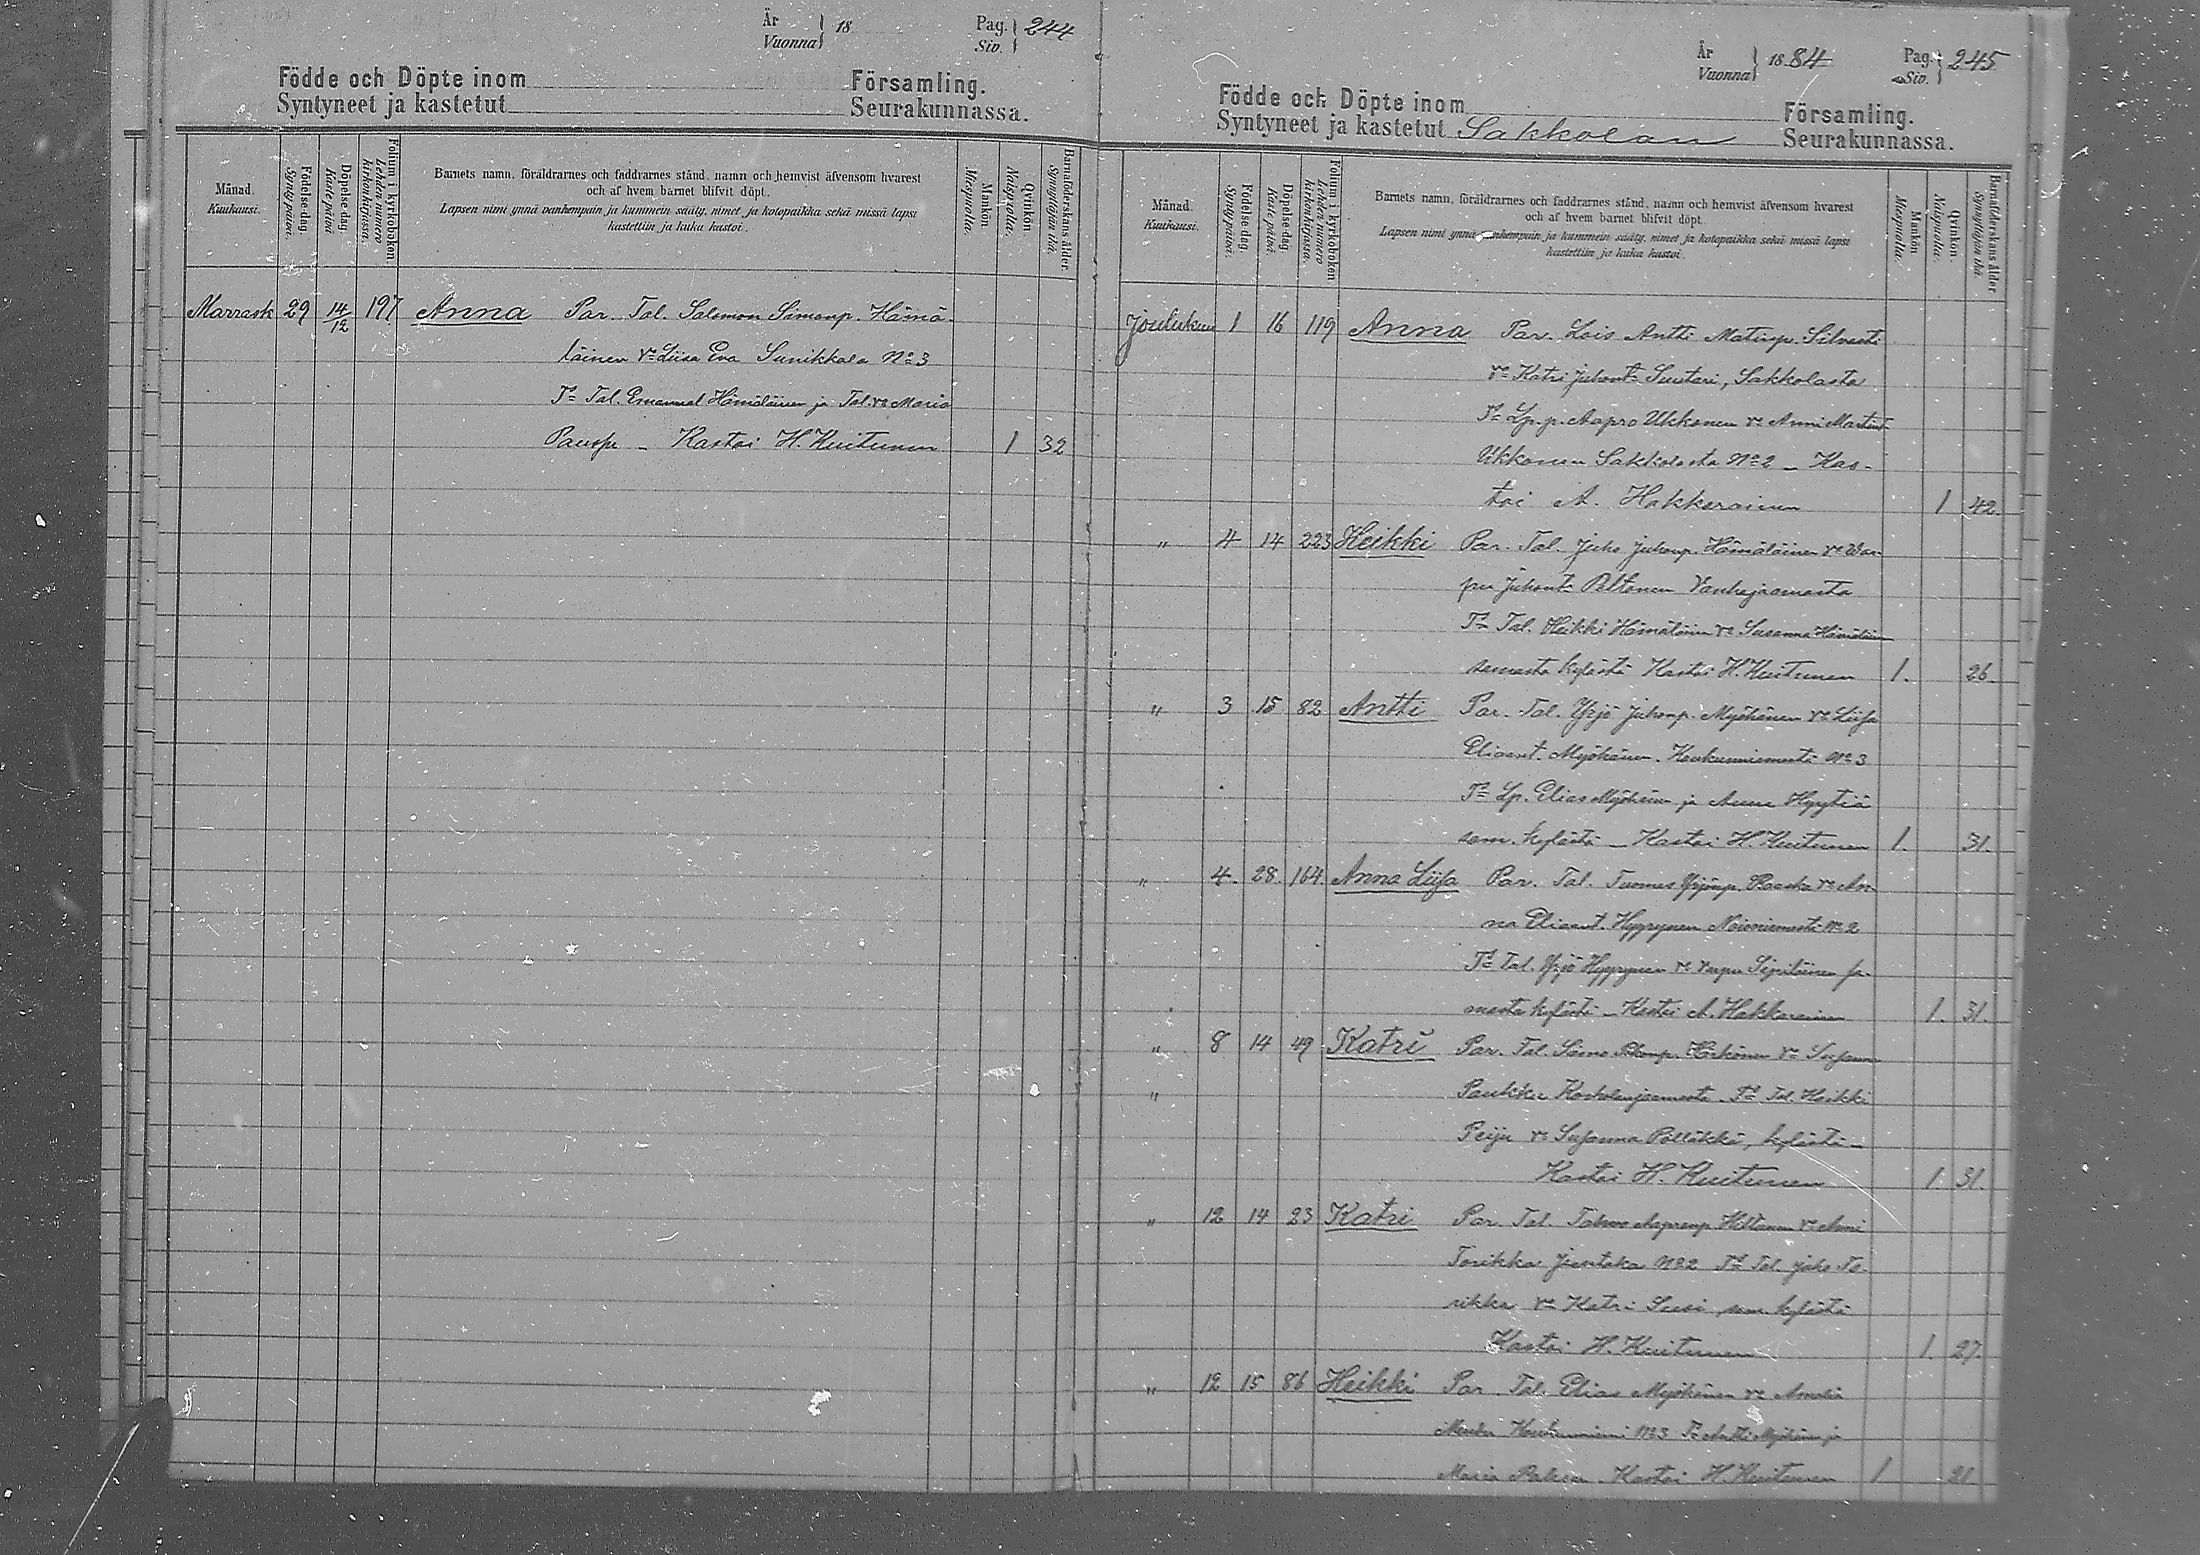 År
Vuonna } 18
Pag.
Siv. } 244
Födde och Döpte inom Församling.
Syntyneet ja kastetut Seurakunnassa.
Månad.
Kuukausi.
Födelse-dag.
Syntypäivä.
Döpelse-dag.
Kastepäivä
Folium i kyrkoboken.
Lehden numero kirkonkirjassa.
Barnets namn, föräldrarnes och faddrarnes stånd, namn och hemvist äfvensom hvarest
och af hvem barnet blifvit döpt.
Lapsen nimi ynnä vanhempain ja kummein sääty, nimet ja kotopaikka sekä missä lapsi
kastettiin ja kuka kastoi.
Mankön
Miespuolia.
Qvinkön
Naispuolia.
Barnaföderskans ålder.
Synnyttäjän ikä.
Marrask 29 14/12 197 Anna Par. Tal. Salomon Simonp. Hämä-
läinen Vo Liisa Eva Sunikkala No 3
Td Tal. Emanuel Hämäläinen ja Tal. vo Maria
Kastoi H. Kuitunen 1 32
År
Vuonna } 1884
Pag.
Siv. } 245
Födde och Döpte inom Församling.
Syntyneet ja kastetut Sakkolan Seurakunnassa.
Månad.
Kuukausi.
Födelse-dag.
Syntypäivä.
Döpelse-dag.
Kastepäivä.
Folium i kyrkoboken.
Lehden numero kirkonkirjassa.
Barnets namn, föräldrarnes och faddrarnes stånd, namn och hemvist äfvensom hvarest
och af hvem barnet blifvit döpt.
Lapsen nimi ynnä vanhempain ja kummein sääty, nimet ja kotopaikka sekä missä lapsi
kastettiin ja kuka kastoi.
Mankön
Miespuolia.
Qvinkön.
Naispuolia.
Barnaföderskans ålder
Synnyttäjän ikä
Joulukuu 1 16 119 Anna Par. Lois Antti Matinp. Silvasti
vo Katri Juhont. Suutari, Sakkolasta
Td Lp. p. Aapro Ukkonen vo Anni Martint
Ukkonen Sakkolasta No 2 - Kas-
toi A. Hakkarainen 1 42
" 4 14 223 Heikki Par. Tal. Juho Juhonp. Hämäläinen vo War-
pu Juhont Peltonen Vanhajaamasta
Td Tal. Heikki Hämäläinen vo Susanna Hämäläinen
samasta kylästä Kastoi H. Kuitunen 1. 26.
" 3 15 82 Antti Par. Tal. Yrjö Juhonp. Myöhänen vo Liisa
Eliant. Myöhänen. Haukuniemestä No 3
Td Lp. Elias Myöhänen ja Anna Hyytiä
sam. kylästä - Kastoi H. Kuitunen 1. 31.
" 4. 28. 164. Anna Liisa Par. Tal. Tuomas Yrjönp. Raaska vo An-
na Eliant. Hyyrynen Noisniemestä No 2
Td Tal. Yrjö Hyyrynen vo Varpu Sipiläinen sa-
masta kylästä - Kastoi A. Hakkarainen 1. 31.
" 8 14 49 Katri Par. Tal. Simo Höikönen vo Susanna
" Paukku Td Tal. Heikki
Peiju vo Susanna Pölläkkä, kylästä -
Kastoi H. Kuitunen 1. 31.
" 12 14 23 Katri Par. Tal. Tahvo Aapronp. Hiltunen vo Anni
Torikka Jiventaka No 2 Td Tal. Juho To-
rikka vo Katri Susi, sam kylästä
Kastoi H. Kuitunen 1. 27.
" 12 15 86 Heikki Par Tal. Elias Myöhänen vo Amalia
Haukuniemi No 3 Td Antti Myöhänen ja
Maria Kastoi H. Kuitunen 1 21